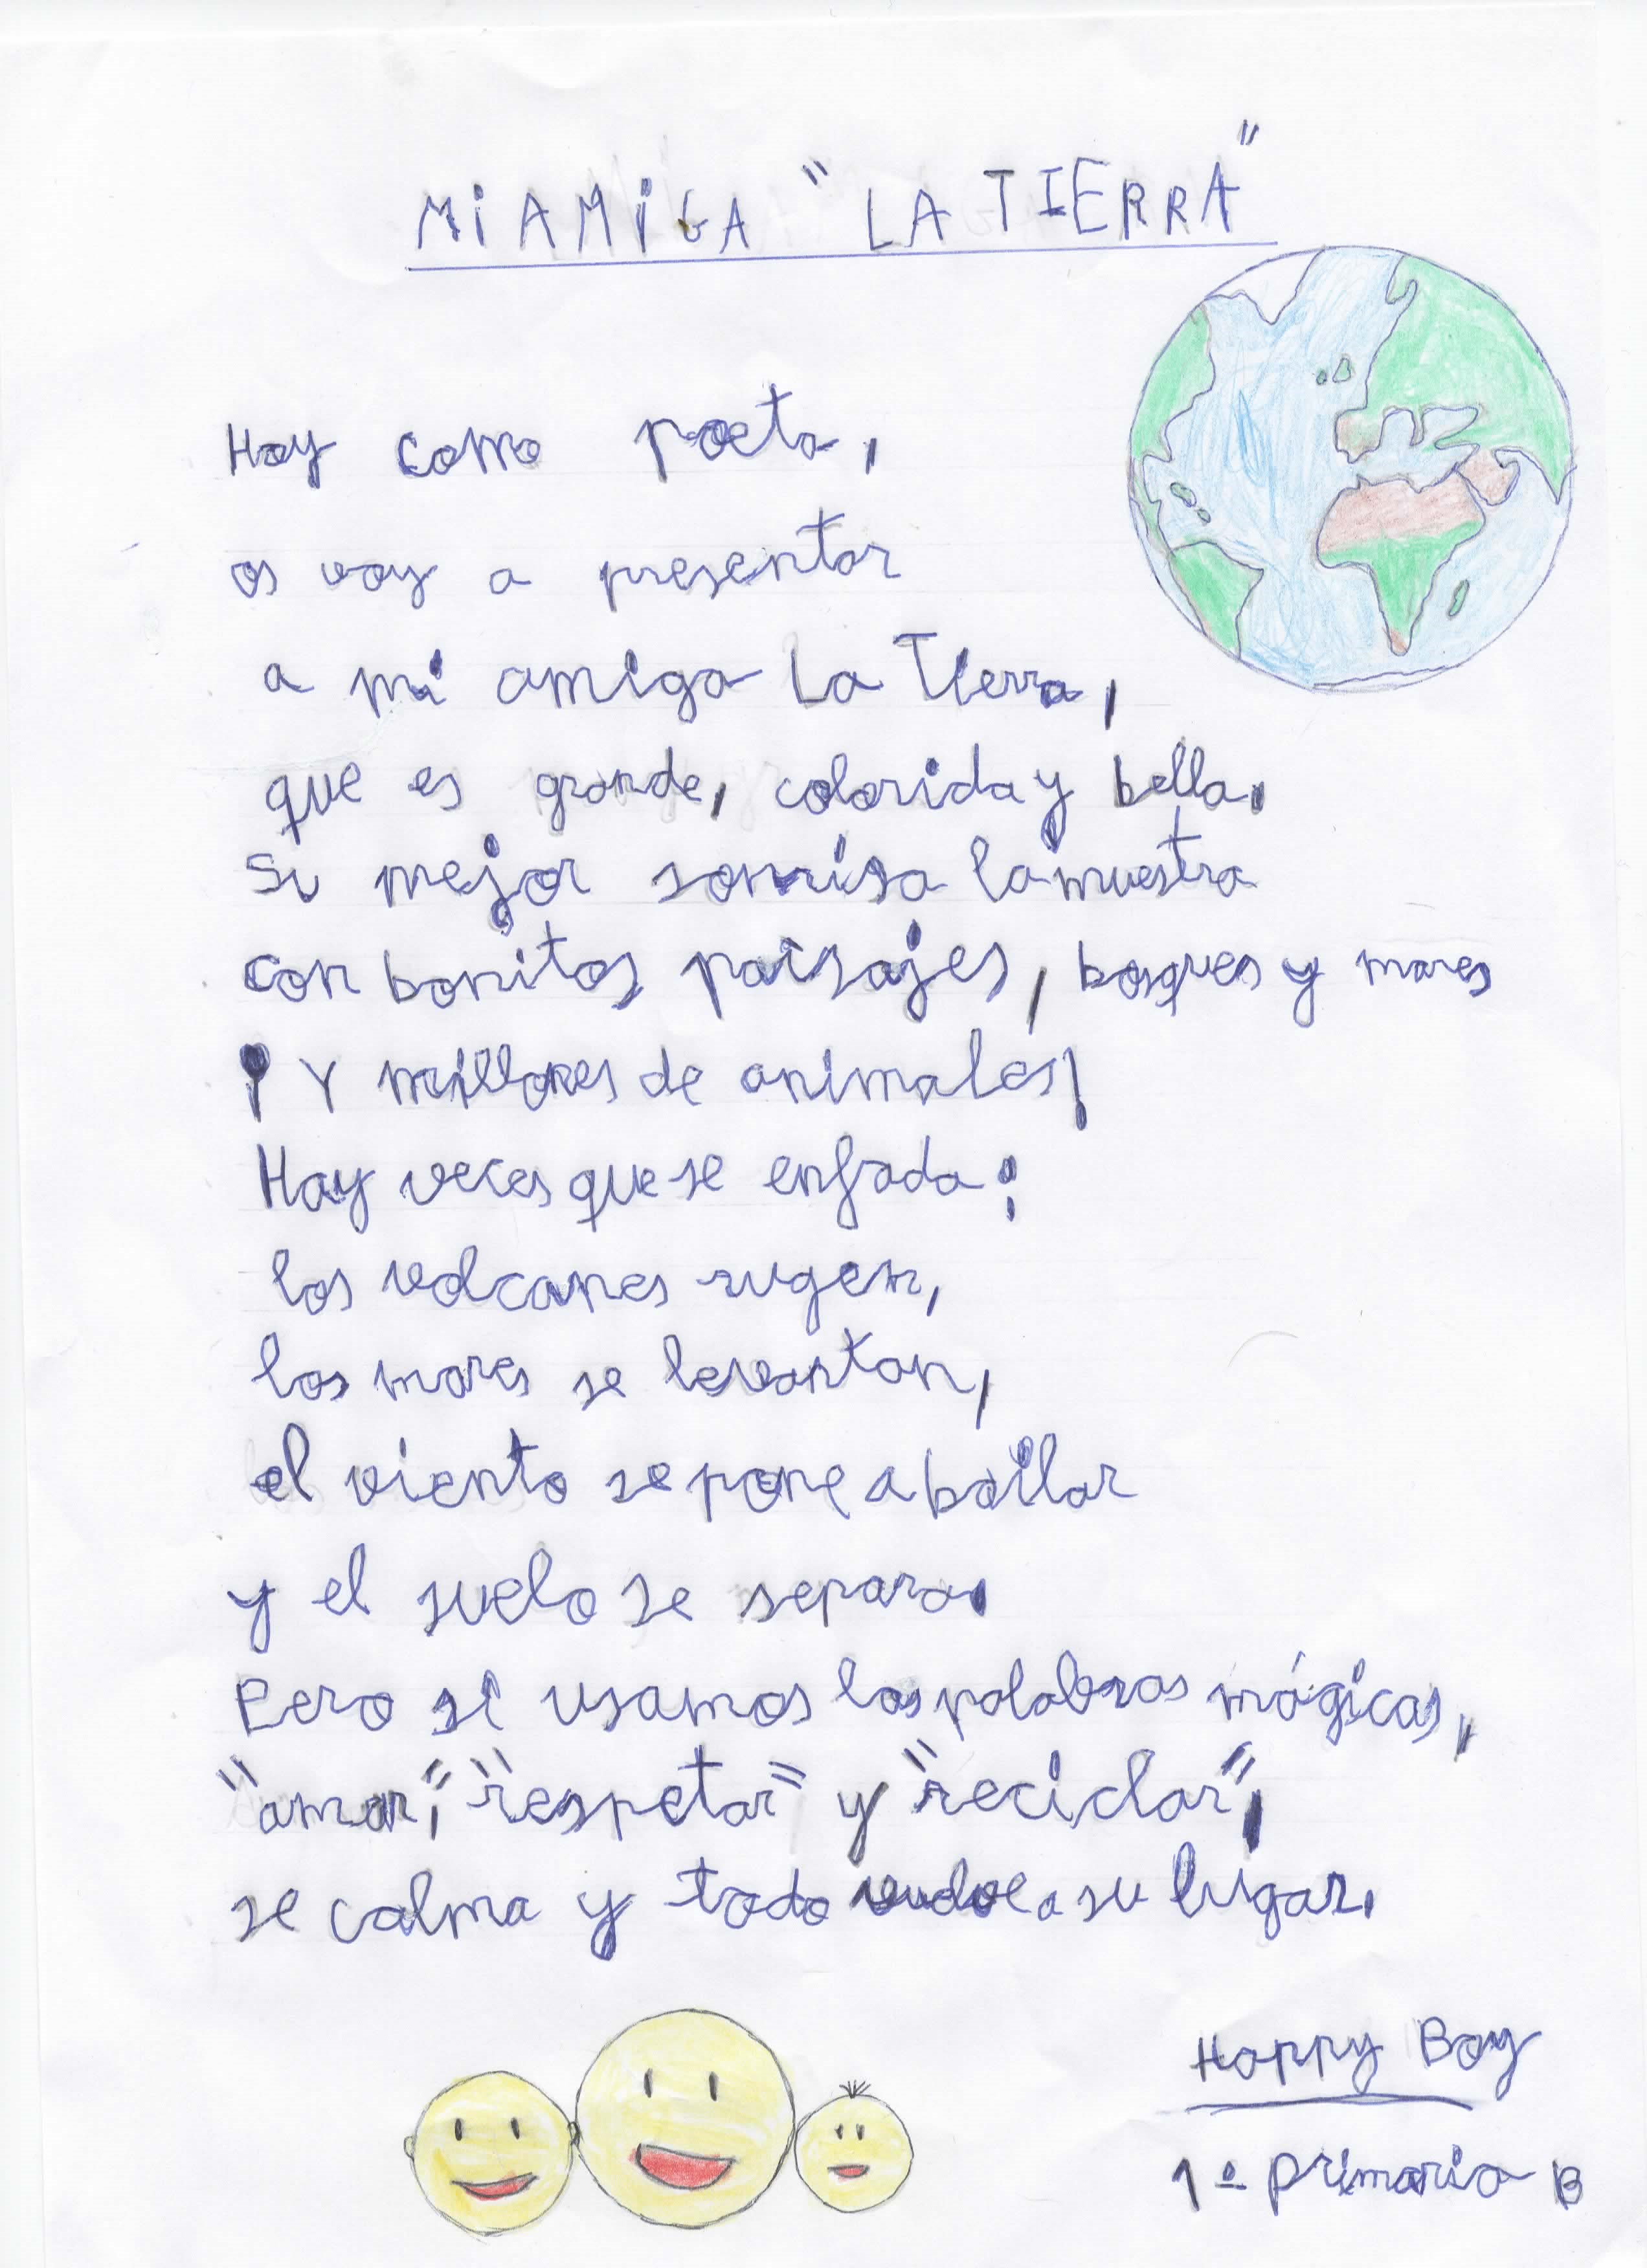 MI AMIGA "LA TIERRA"
Hoy como poeta,
os voy a presentar
a mi amiga La Tierra,
que es grande, colorida y bella.
Su mejor sonrisa la muestra
con bonitos paisajes, bosques y mares
¡Y millones de animales!
Hay veces que se enfada:
los volcanes rugen,
los mares se levantan,
el viento se pone a bailar
y el suelo se separa.
Pero si usamos las palabras mágicas,
"amar", "respetar" y "reciclar",
se calma y todo vuelve a su lugar.
Happy Boy
1º primaria B